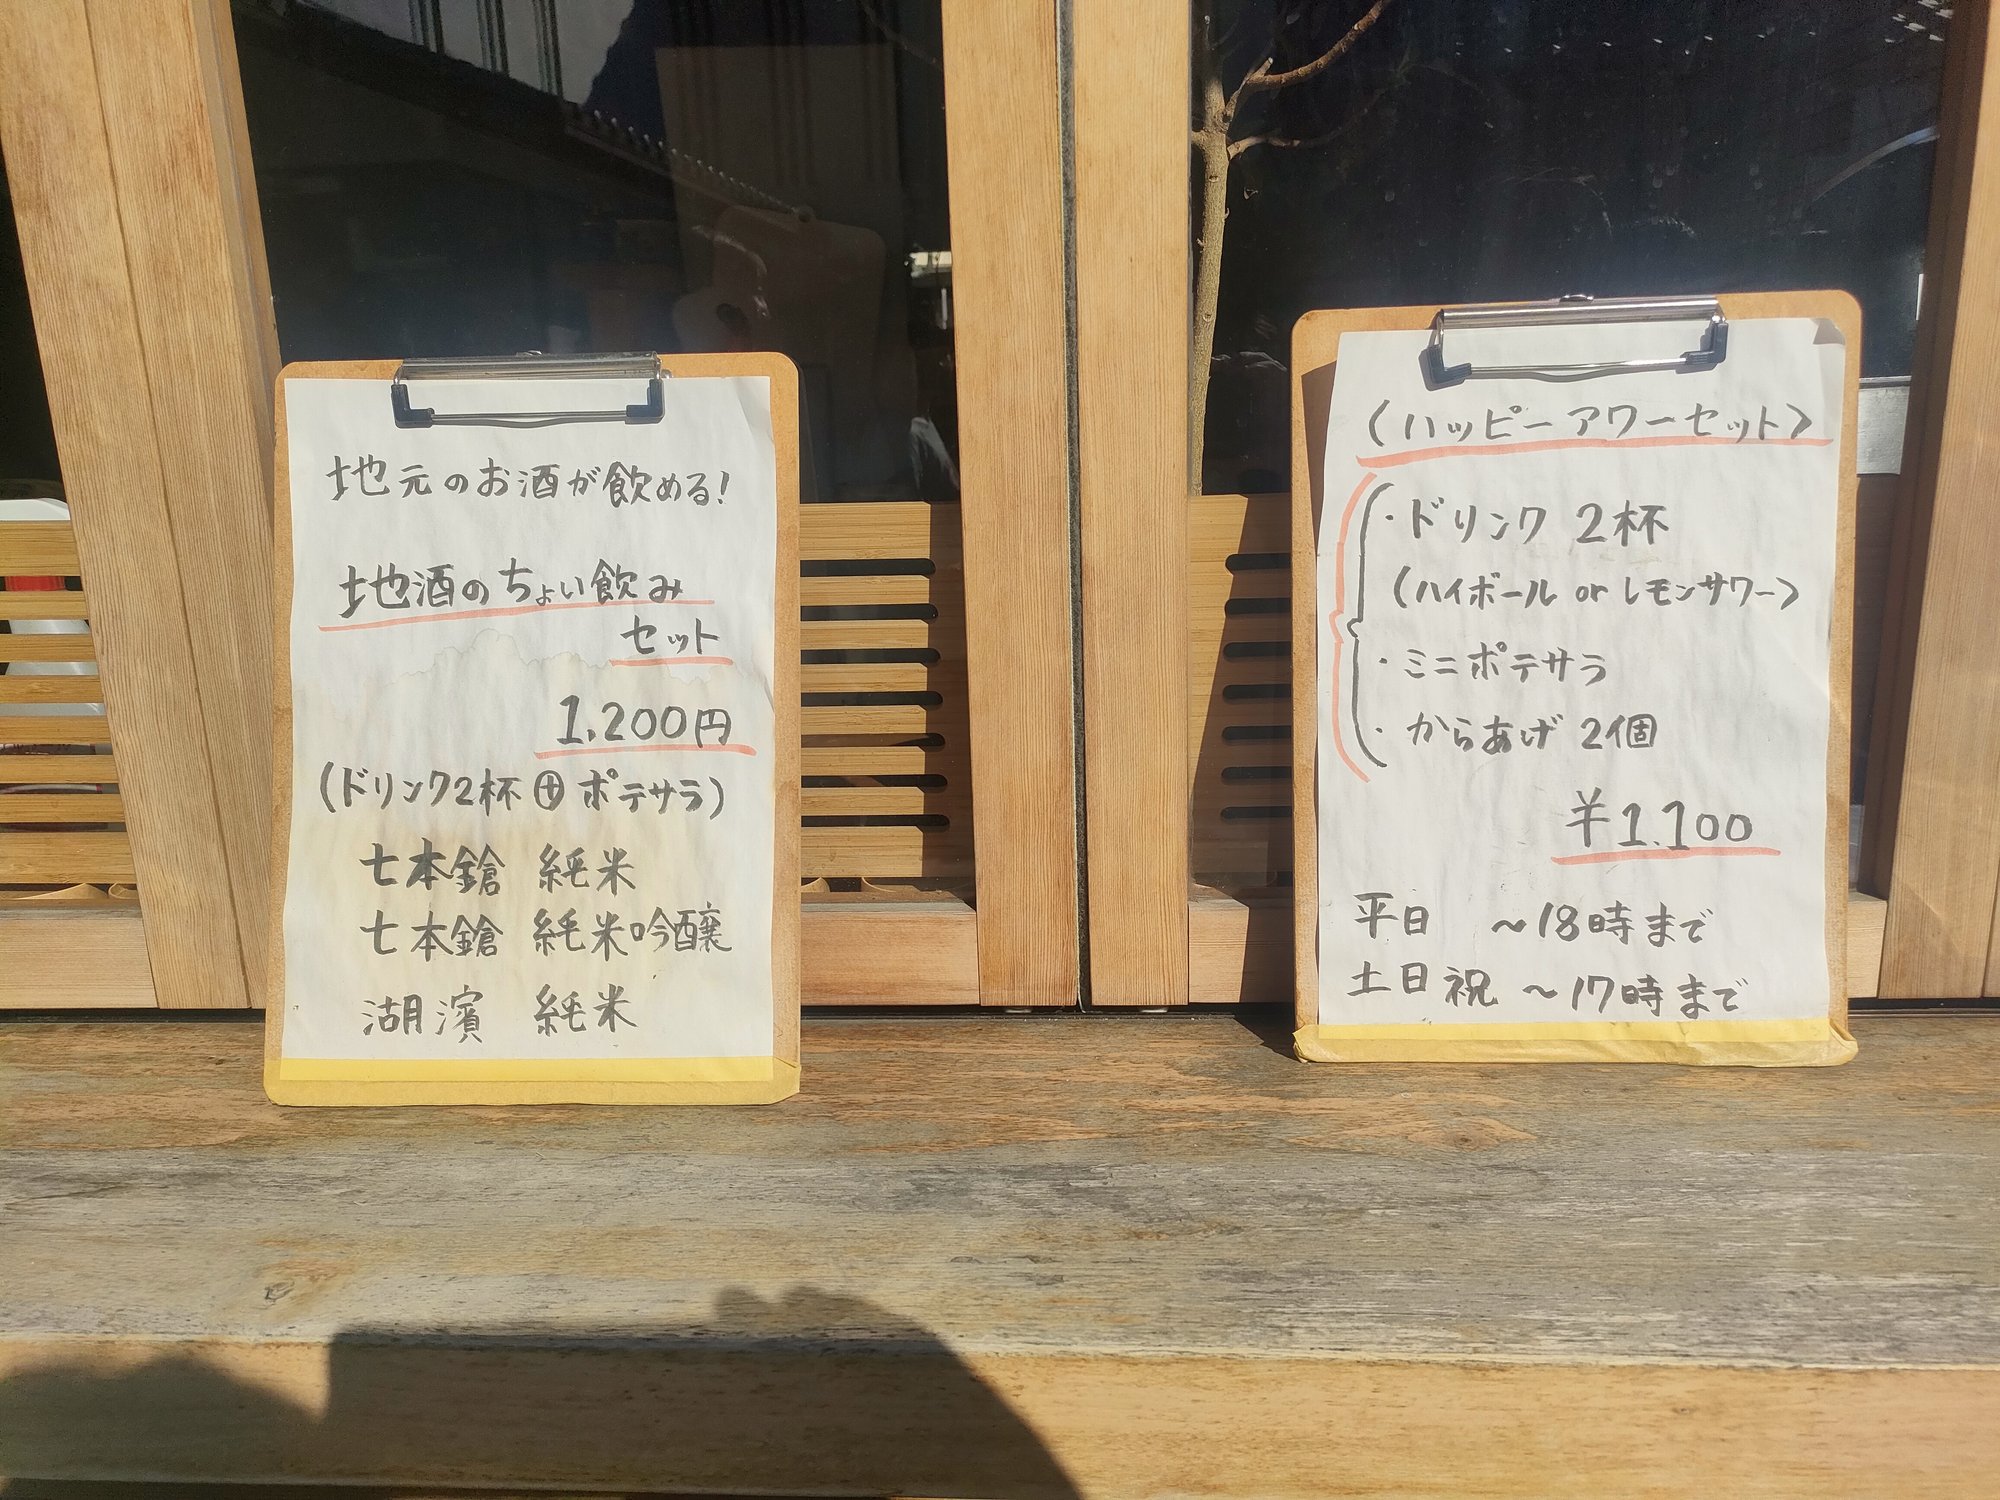 地元のお酒が飲める!
地酒のちょい飲み
セット
1,200円
(ドリンク2杯⊕ポテサラ)
七本鎗 純米
七本鎗 純米吟醸
湖濱 純米
(ハッピーアワーセット)
・ドリンク 2杯
(ハイボール or レモンサワー)
・ミニポテサラ
・からあげ 2個
¥1.100
平日 ～18時まで
土日祝 ～17時まで